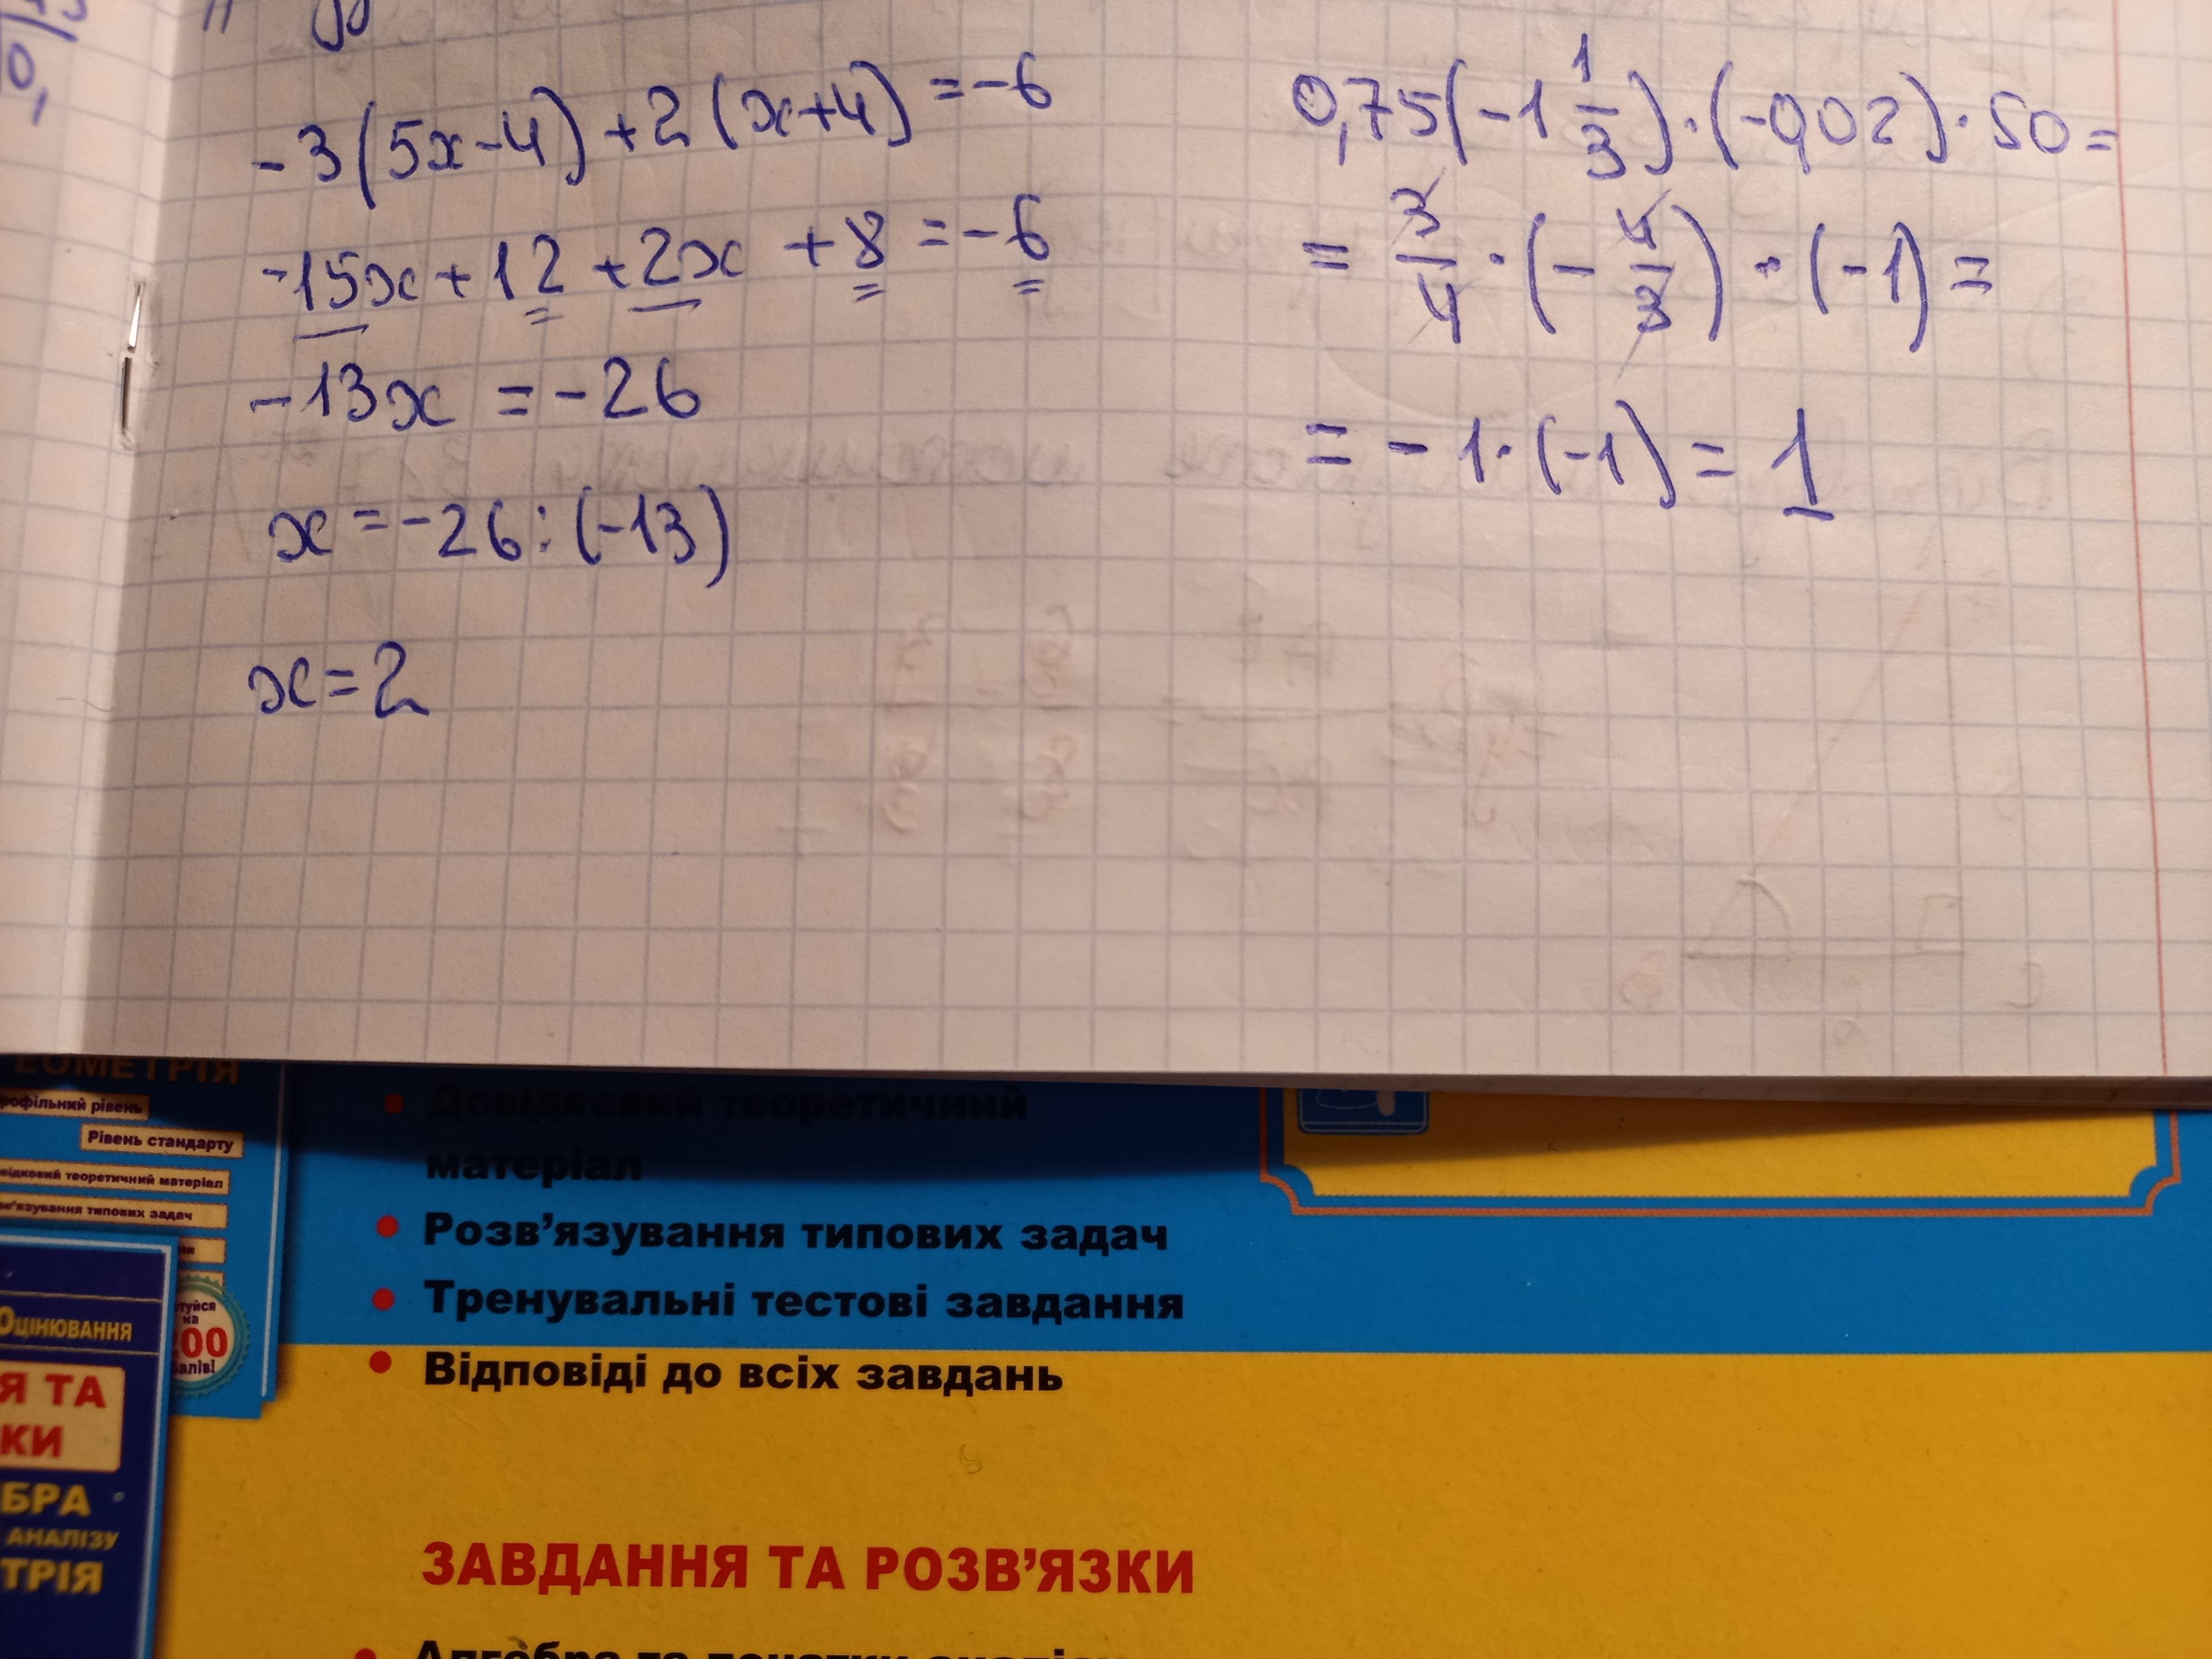 -3(5x-4)+2(x+4)=-6
-15x+12+2x+8=-6
-13x=-26
x=-26:(-13)
x=2
0,75(-1 1/3)·(-0,02)·50=
= 3/4·(-4/3)·(-1)=
=-1·(-1)=1
ЕОМЕТРІЯ
рофільний рівень
Рівень стандарту
відковий теоретичний матеріал
зв'язування типових задач
туйся
на
200
балів!
Оцінювання
Я ТА
КИ
БРА
АНАЛІЗУ
ТРІЯ
• Довідковий теоретичний
матеріал
• Розв’язування типових задач
• Тренувальні тестові завдання
• Відповіді до всіх завдань
ЗАВДАННЯ ТА РОЗВ’ЯЗКИ
• Алгебра та початки аналізу